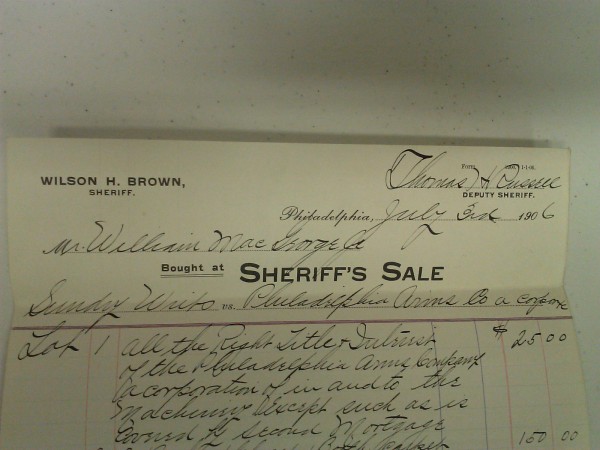 WILSON H. BROWN,
SHERIFF.
Thomas H Russell
DEPUTY SHERIFF.
Philadelphia, July 3rd 1906
Mr. William Mac George Jr
Bought at SHERIFF'S SALE
Sundry Writs vs. Philadelphia Arms Co a corpor
Lot 1 all the Right Title & Intrust $ 25 00
of the Philadelphia Arms Company
(a corporation of in and to the
Machinery except such as is
Covered by second Mortgage
150 00